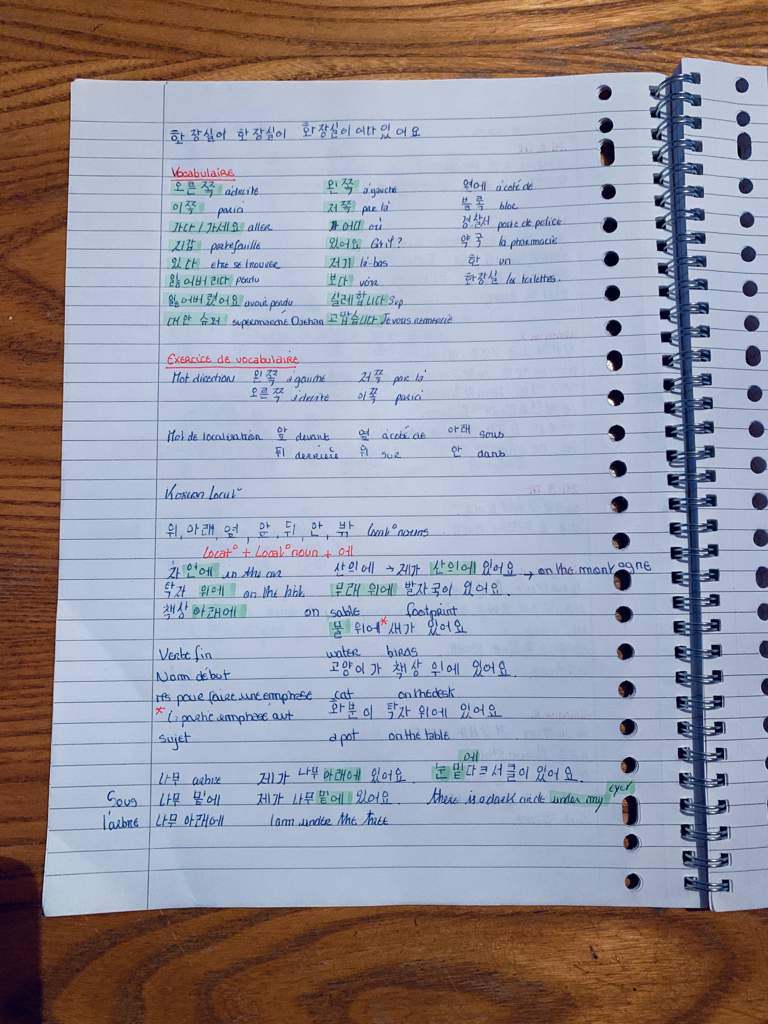 화장실이 화장실이 화장실이 어디 있어요
Vocabulaire
오른쪽 à droite 왼쪽 à gauche 옆에 à côté de
이쪽 par ici 저쪽 par là 블록 bloc
가다 / 가세요 aller 어디 où 경찰서 poste de police
지갑 portefeuille 있어요 약국 la pharmacie
있다 être se trouver 저기 là-bas 한 un
잃어버리다 perdu 보다 voir 화장실 les toilettes.
잃어버렸어요 avoir perdu 실례합니다 Svp
대한 슈퍼 supermarché Daehan 고맙습니다 Je vous remercie
Exercice de vocabulaire
Mot direction 왼쪽 à gauche 저쪽 par là
오른쪽 à droite 이쪽 par ici
Mot de localisation 앞 devant 옆 à côté de 아래 sous
뒤 derrière 위 sur 안 dans
Korean locat°
위, 아래, 옆, 앞, 뒤, 안, 밖 locat° nouns
locat° + locat° noun + 에
차 안에 in the car 산위에 → 제가 산위에 있어요 → on the montagne
탁자 위에 on the table 모래 위에 발자국이 있어요.
책상 아래에 on sable footprint
물 위에* 새가 있어요
Verbe fin water birds
Nom début 고양이가 책상 위에 있어요.
ms pour faire une emphase cat on the desk
* 화분이 탁자 위에 있어요
sujet a pot on the table
에
나무 arbre 제가 나무 아래에 있어요. 눈 밑 다크서클이 있어요.
Sous 나무 밑에 제가 나무 밑에 있어요. there is a dark circle under my eyes
l'arbre 나무 아래에 I am under the tree